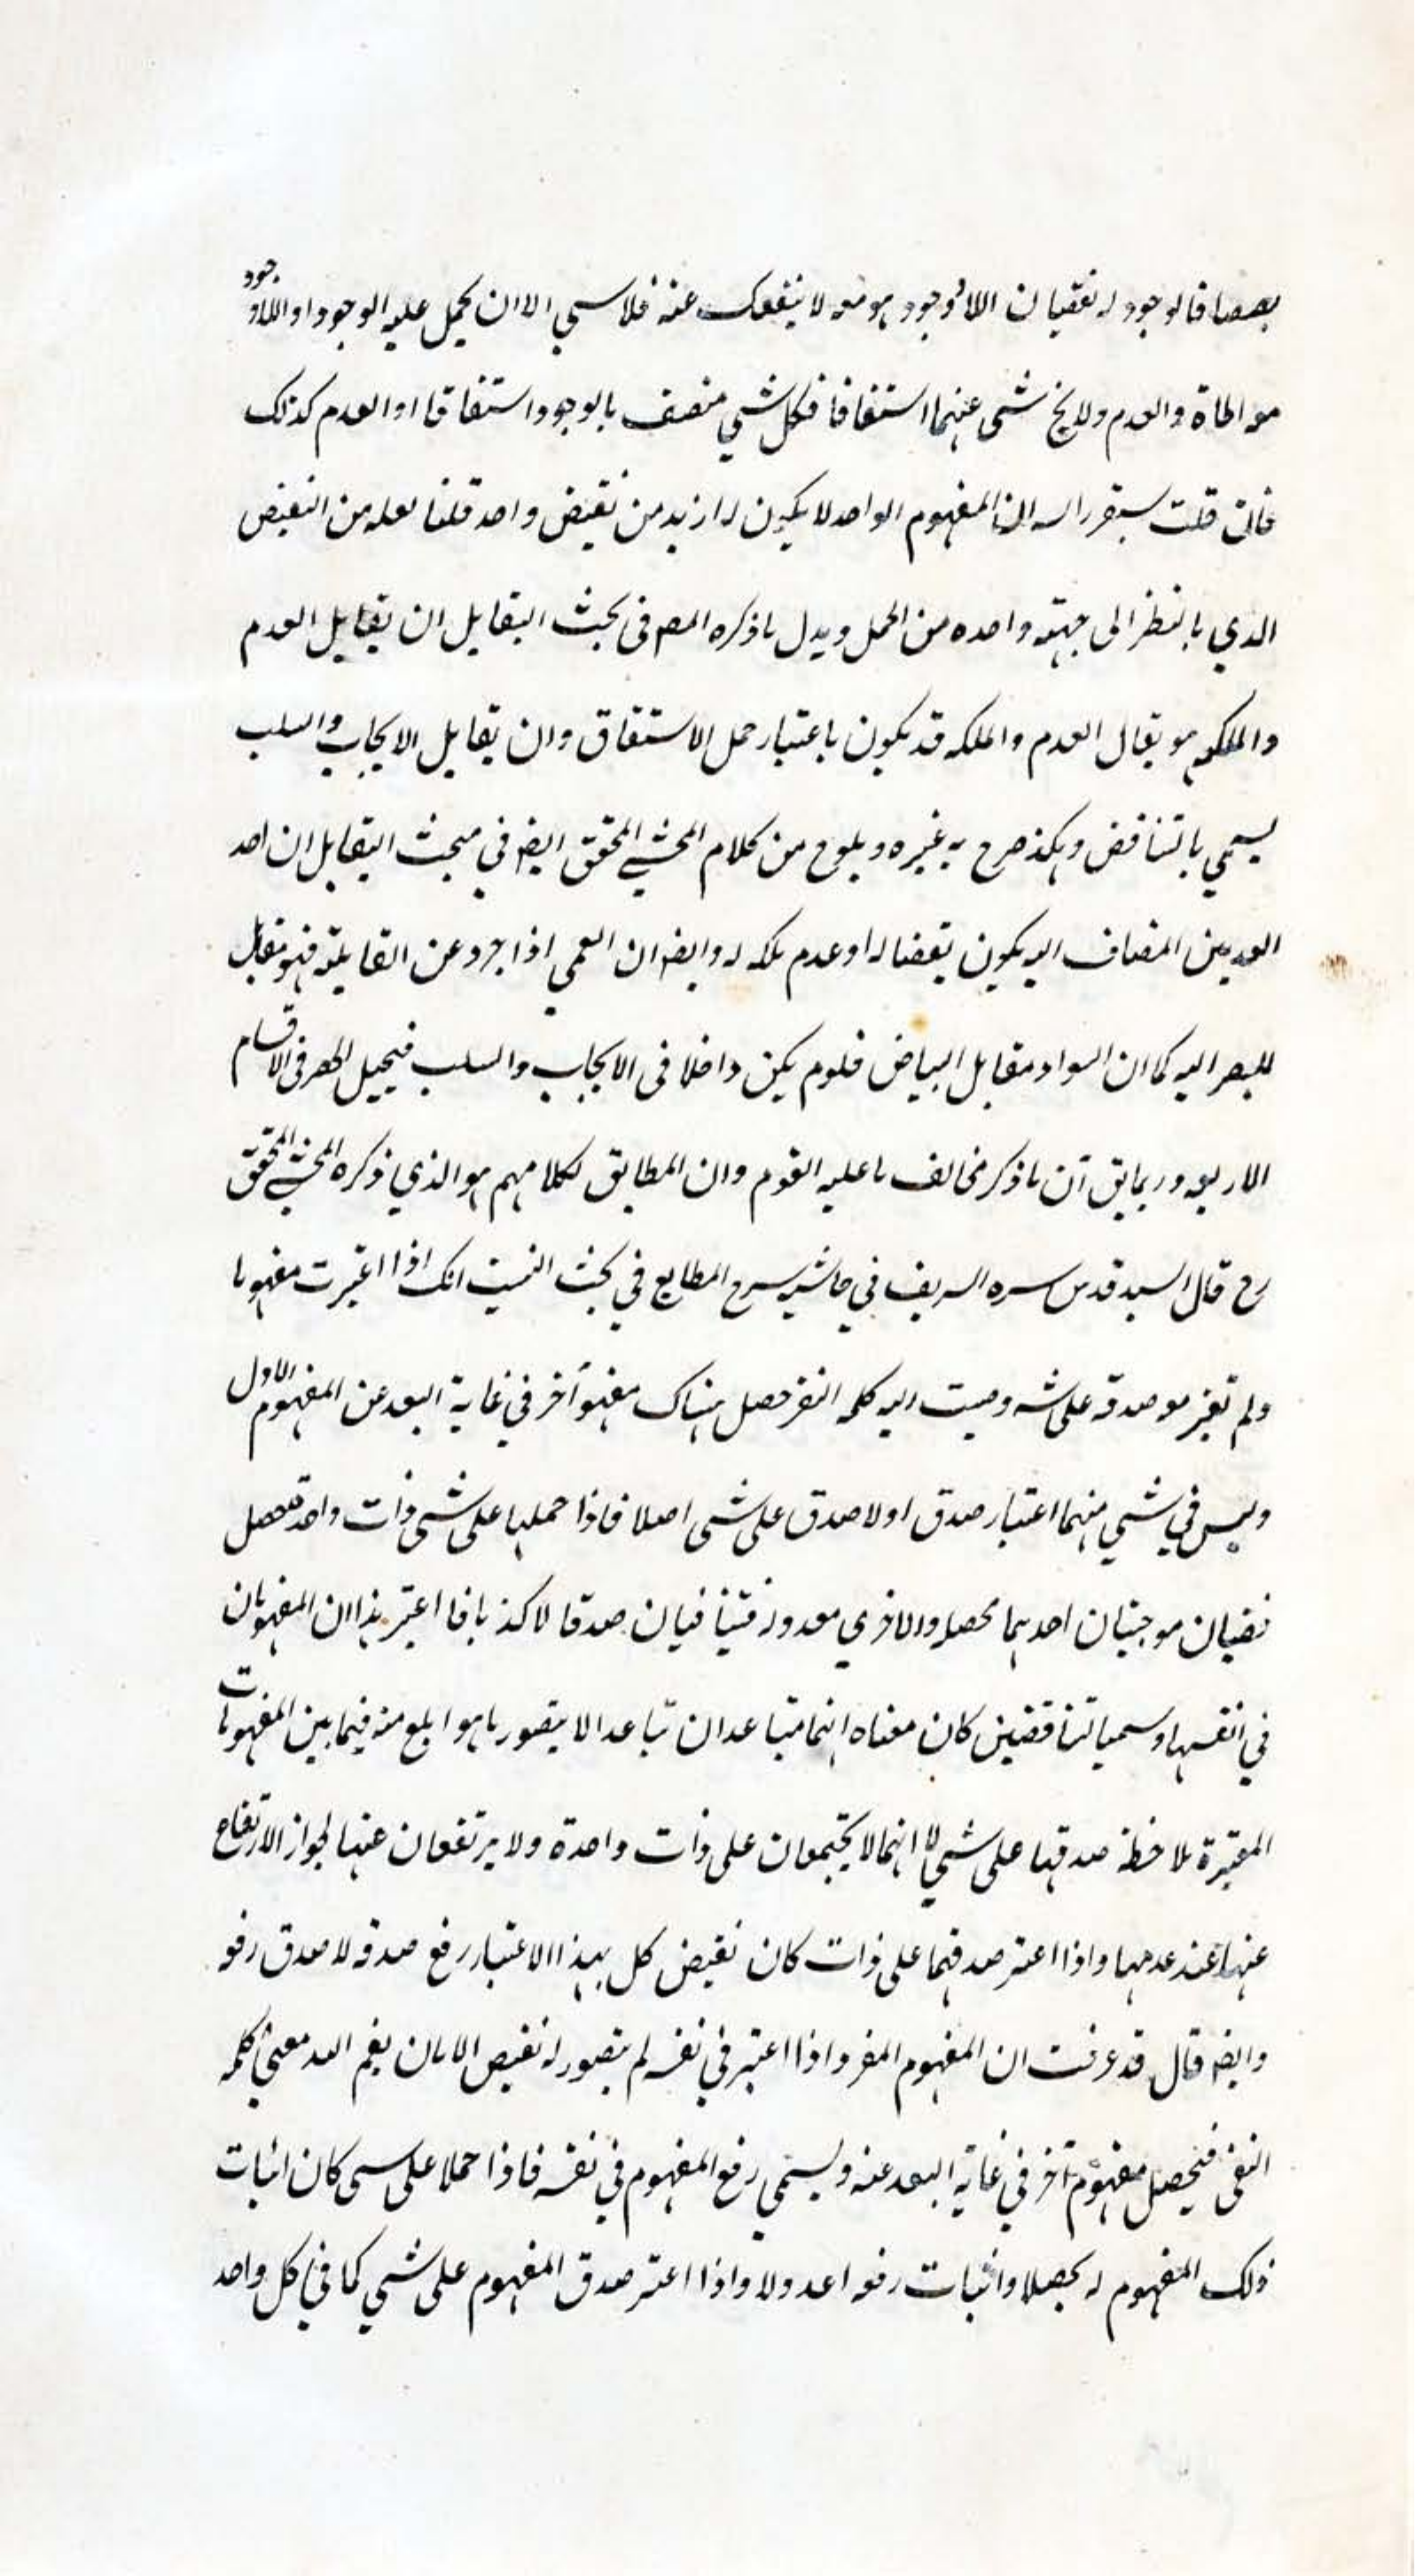 بعضا فالوجود له نقيضان اللاوجود هو معه لا ينفك عنه فلا شي الا ان يحمل عليه الوجود او اللاوجود
مواطاة والعدم ولا يخ شي عنهما اشتقاقا فكل شي متصف بالوجود اشتقاقا او العدم كذلك
فان قلت سيقرر الش ان المفهوم الواحد لا يكون له ازيد من نقيض واحد قلنا لعله من النقيض
الذي بالنظر الى جهته واحده من الحمل ويدل ما ذكره المص في بحث التقابل ان تقابل العدم
والملكه هو يقال العدم والملكه قد يكون باعتبار حمل الاشتقاق وان تقابل الايجاب والسلب
يسمي بالتناقض وهكذ صرح به غيره ويلوح من كلام المحشي المحقق ايضه في مبحث التقابل ان احد
العدمين المضاف اليه يكون نقيضا له او عدم ملكه له وايضه ان العمي اذا جرد عن القابليته فهو مقابل
للبصر اليه كما ان السواد مقابل البياض فلو لم يكن داخلا في الايجاب والسلب فيختل الحصر في الاقسام
الاربعه وربما يق ان ما ذكر مخالف ما عليه القوم وان المطابق لكلامهم هو الذي ذكره المحشي المحقق
رح قال السيد قدس سره الشريف في حاشيه شرح المطالع في بحث النسب انك اذا اعتبرت مفهوما
ولم تعتبر معه صدقه على شي وضمت اليه كلمه النفي حصل هناك مفهوم آخر في غاية البعد عن المفهوم الاول
وليس في شي منهما اعتبار صدق او لا صدق على شي اصلا فاذا حملها على شي ذات واحد حصل
قضيتان موجبتان احديهما محصله والاخري معدوله متنافيتان صدقا لا كذبا فاذا اعتبر هذا ان المفهومان
في انفسهما وسميا متناقضين كان معناه انهما متباعدان تباعدا لا يتصور ما هو ابلغ منه فيما بين المفهومات
المعتبرة ملاحظة صدقها على شي لا انهما لا يجتمعان على ذات واحدة ولا يرتفعان عنها لجواز الارتفاع
عنها عند عدمها واذا اعتبر صدقهما على ذات كان نقيض كل بهذا الاعتبار رفع صدقه لا صدق رفعه
وايضه قال قد عرفت ان المفهوم المفرد اذا اعتبر في نفسه لم يتصور له نقيض الا بان يضم اليه معني كلمه
النفي فيحصل مفهوم آخر في غاية البعد عنه ويسمي رفع المفهوم في نفسه فاذا حملا على شي كان اثبات
ذلك المفهوم له تحصيلا واثبات رفعه عدولا واذا اعتبر صدق المفهوم على شي كما في كل واحد